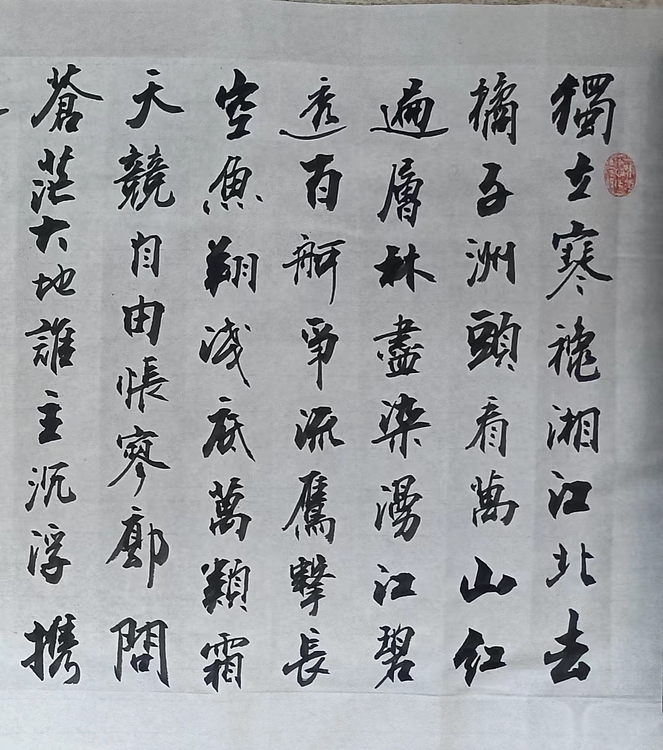 獨立寒穐湘江北去
橘子洲頭看萬山紅
遍層林盡染漫江碧
透百舸爭流鷹擊長
空魚翔淺底萬類霜
天競自由悵寥廓問
蒼茫大地誰主沉浮
攜